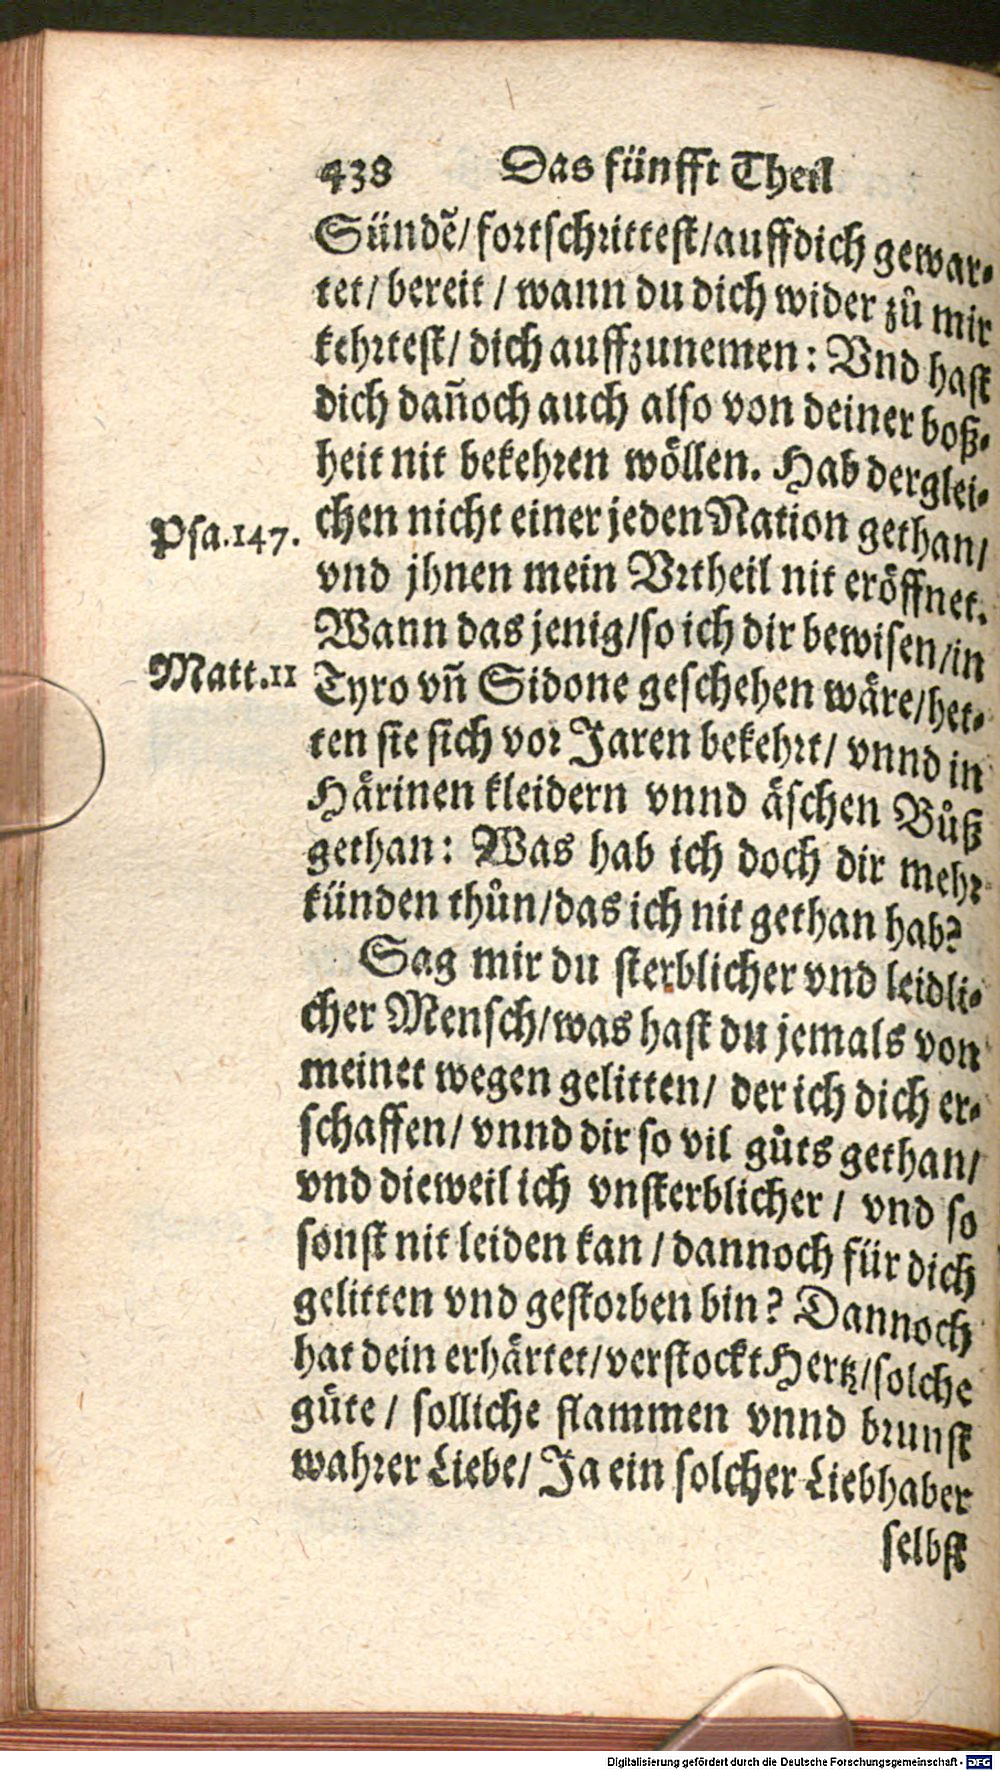 438 Das fünfft Theil
Sündẽ/ fortschrittest/ auff dich gewar-
tet/ bereit / wann du dich wider zů mir
kehrtest/ dich auffzunemen: Vnd hast
dich dañoch auch also von deiner boß-
heit nit bekehren wöllen. Hab derglei-
Psa.147. chen nicht einer jeden Nation gethan/
vnd jhnen mein Vrtheil nit eröffnet.
Wann das jenig/ so ich dir bewisen/ in
Matt.11 Tyro vñ Sidone geschehen wäre/ het-
ten sie sich vor Jaren bekehrt/ vnnd in
Härinen kleidern vnnd äschen Bůß
gethan: Was hab ich doch dir mehr
künden thůn/ das ich nit gethan hab?
Sag mir du sterblicher vnd leidli-
cher Mensch/ was hast du jemals von
meinet wegen gelitten/ der ich dich er-
schaffen/ vnnd dir so vil gůts gethan/
vnd dieweil ich vnsterblicher / vnd so
sonst nit leiden kan / dannoch für dich
gelitten vnd gestorben bin? Dannoch
hat dein erhärtet/ verstockt Hertz/ solche
güte / solliche flammen vnnd brunst
wahrer Liebe/ Ja ein solcher Liebhaber
selbst
Digitalisierung gefördert durch die Deutsche Forschungsgemeinschaft - DFG